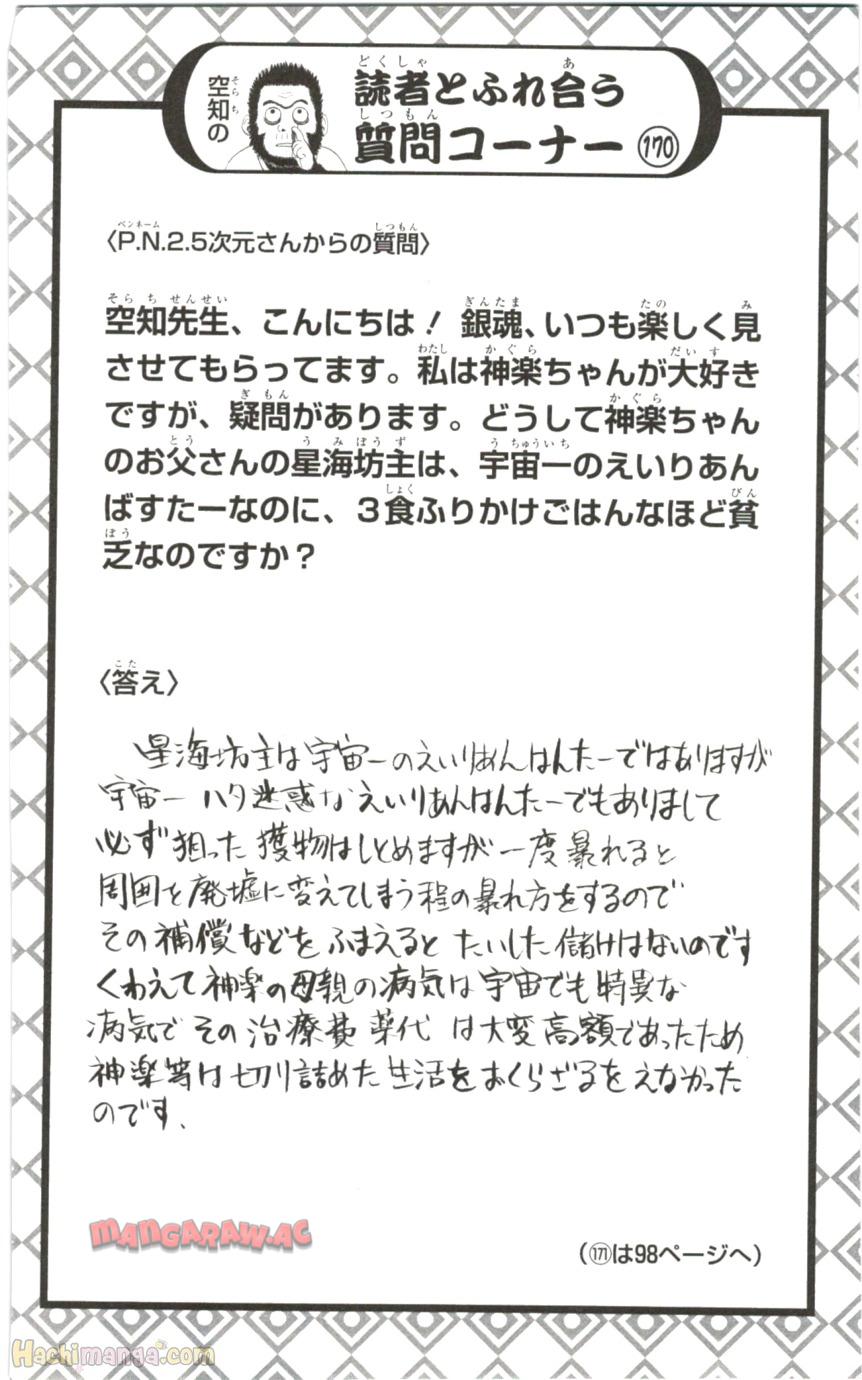 空知の
読者とふれ合う
質問コーナー 170
〈P.N.2.5次元さんからの質問〉
空知先生、こんにちは! 銀魂、いつも楽しく見
させてもらってます。私は神楽ちゃんが大好き
ですが、疑問があります。どうして神楽ちゃん
のお父さんの星海坊主は、宇宙一のえいりあん
ばすたーなのに、3食ふりかけごはんなほど貧
乏なのですか?
〈答え〉
星海坊主は宇宙一のえいりあんはんたーではありますが
宇宙一 ハタ迷惑な えいりあんはんたーでもありまして
必ず狙った獲物はしとめますが一度暴れると
周囲を廃墟に変えてしまう程の暴れ方をするので
その補償などをふまえるとたいした儲けはないのです
くわえて神楽の母親の病気は宇宙でも特異な
病気でその治療費薬代は大変高額であったため
神楽等は切り詰めた生活をおくらざるをえなかった
のです.
MANGARAW.AC
(171は98ページへ)
Hachimanga.com